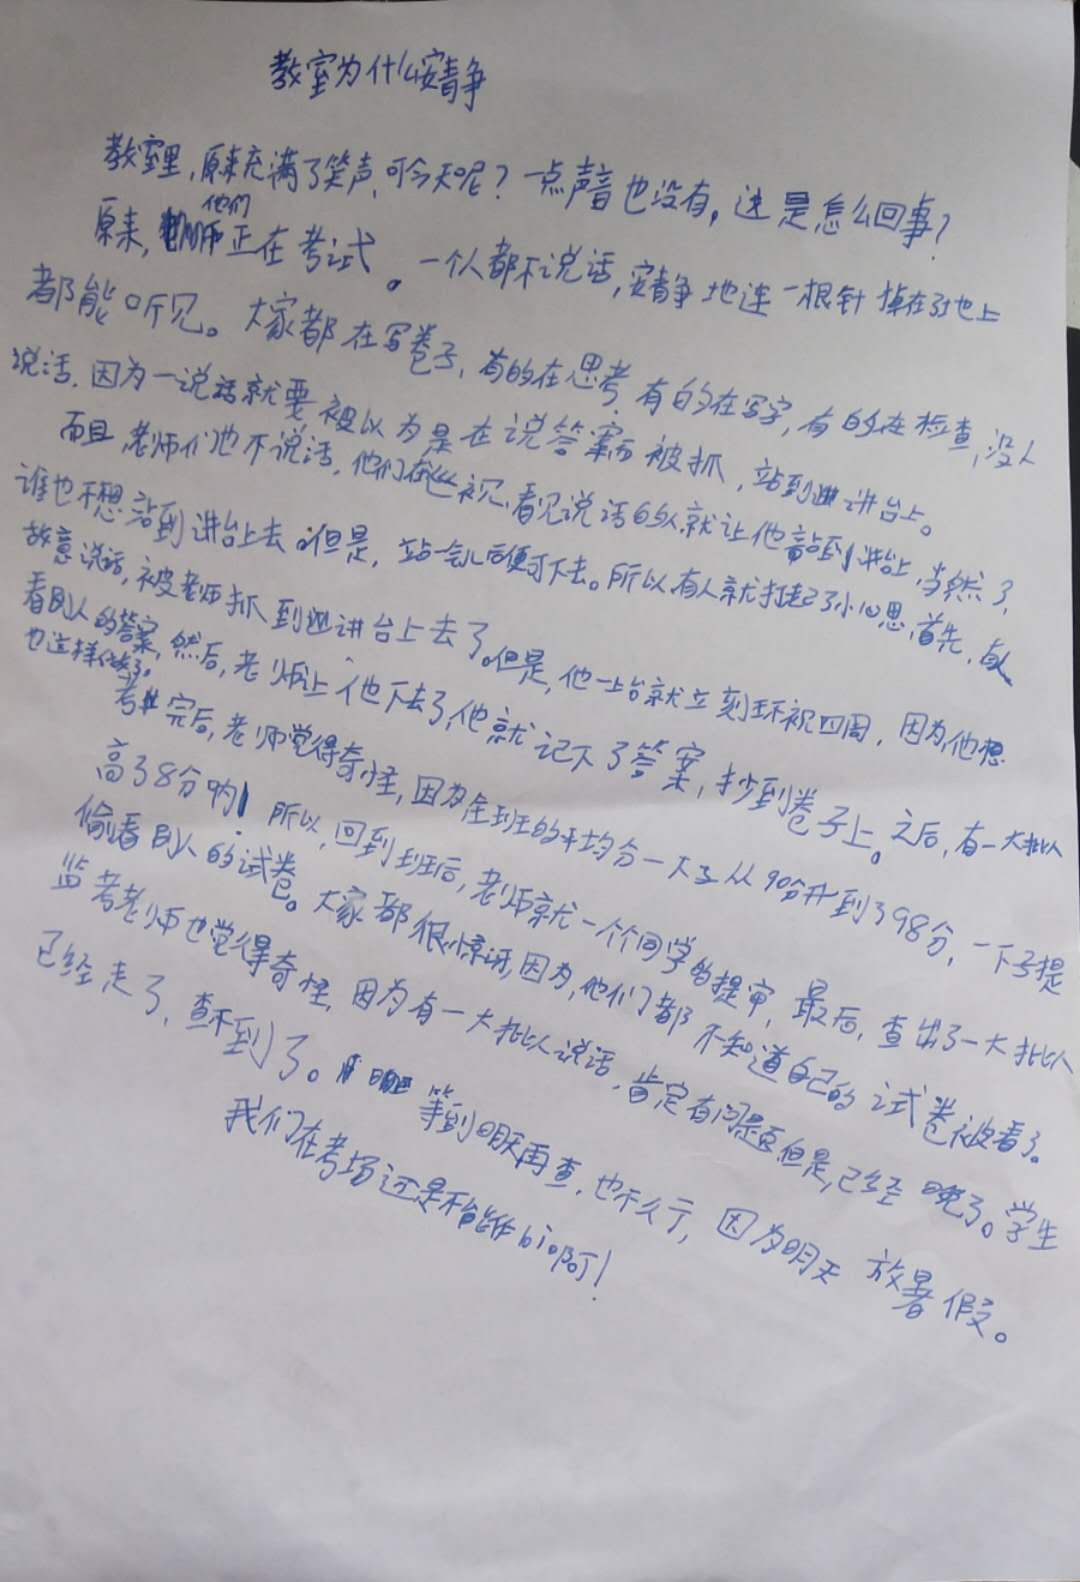 教室为什么安静
教室里,原来充满了笑声,可今天呢?一点声音也没有,这是怎么回事?
原来,他们正在考试。一个人都不说话,安静地连一根针掉在了地上
都能听见。大家都在写卷子,有的在思考,有的在写字,有的在检查,没人
说话,因为一说话就要被以为是在说答案而被抓,站到讲台上。
而且,老师们也不说话,他们在巡视,看见说话的人就让他站到讲台上,当然了,
谁也不想站到讲台上去。但是,站一会儿后便可下去。所以有人就打起了小心思,首先,有人
故意说话,被老师抓到讲台上去了。但是,他一上台就立刻环视四周,因为,他想
看别人的答案,然后,老师让他下去了,他就记下了答案,抄到卷子上。之后,有一大批人
也这样做了。
考完后,老师觉得奇怪,因为,全班的平均分一大子从90分升到了98分,一下子提
高了8分呐!所以,回到班后,老师就一个个同学的提审,最后,查出了一大批人
偷看别人的试卷。大家都很惊讶,因为,他们都不知道自己的试卷被看了。
监考老师也觉得奇怪,因为有一大批人说话,肯定有问题,但是,已经晚了。学生
已经走了,查不到了。等到明天再查,也不行,因为明天放暑假。
我们在考场还是不能作bi啊!